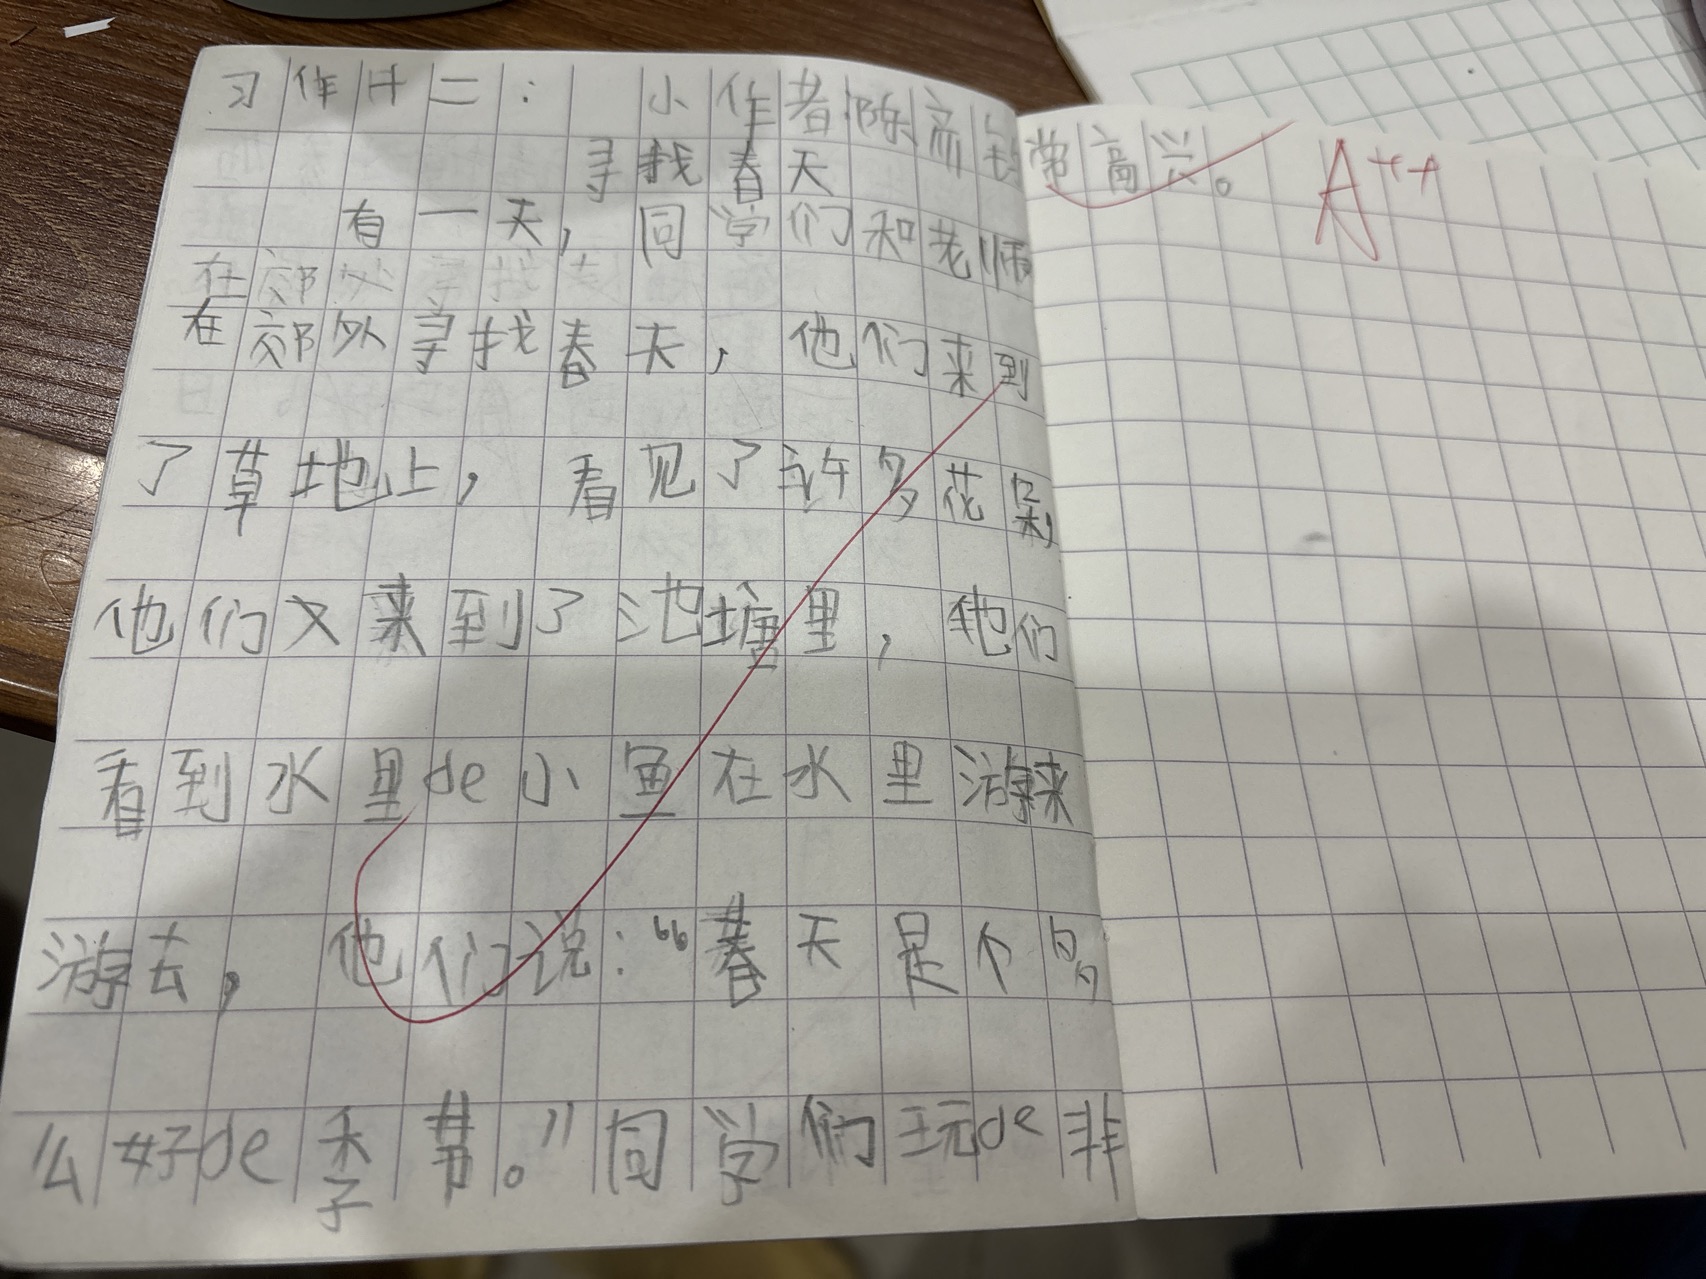 习作廿二： 小作者陈
寻找春天
有一天，同学们和老师
在郊外寻找春天，他们来到
了草地上，看见了许多花朵，
他们又来到了池塘里，他们
看到水里de小鱼在水里游来
游去，他们说：“春天是个多
么好de季节。”同学们玩de非
常高兴。
A++